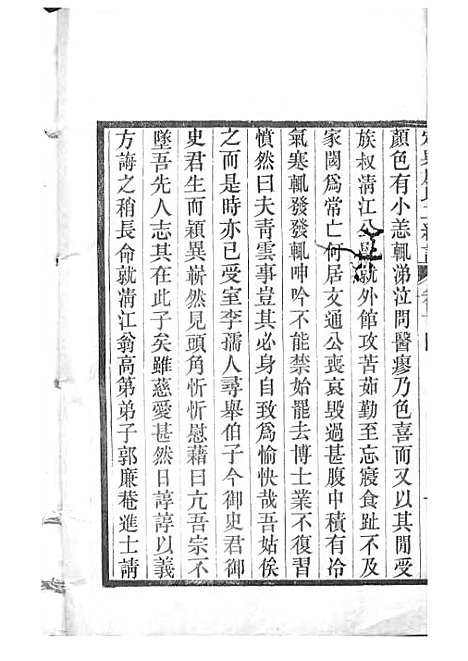 顏色有小恙輒涕泣問醫廖乃色喜而又以其閒受
族叔淸江公學就外館攻苦茹勤至忘寢食趾不及
家閾爲常亡何居文通公喪哀毀過甚腹中積有冷
氣寒輒發發輒呻吟不能禁始罷去博士業不復習
憤然曰夫靑雲事豈其必身自致爲愉快哉吾姑俟
之而是時亦已受室李孺人尋舉伯子今御史君御
史君生而穎異嶄然見頭角忻忻慰藉曰亢吾宗不
墜吾先人志其在此子矣雖慈愛甚然日諄諄以義
方誨之稍長命就淸江翁高第弟子郭廉菴進士請